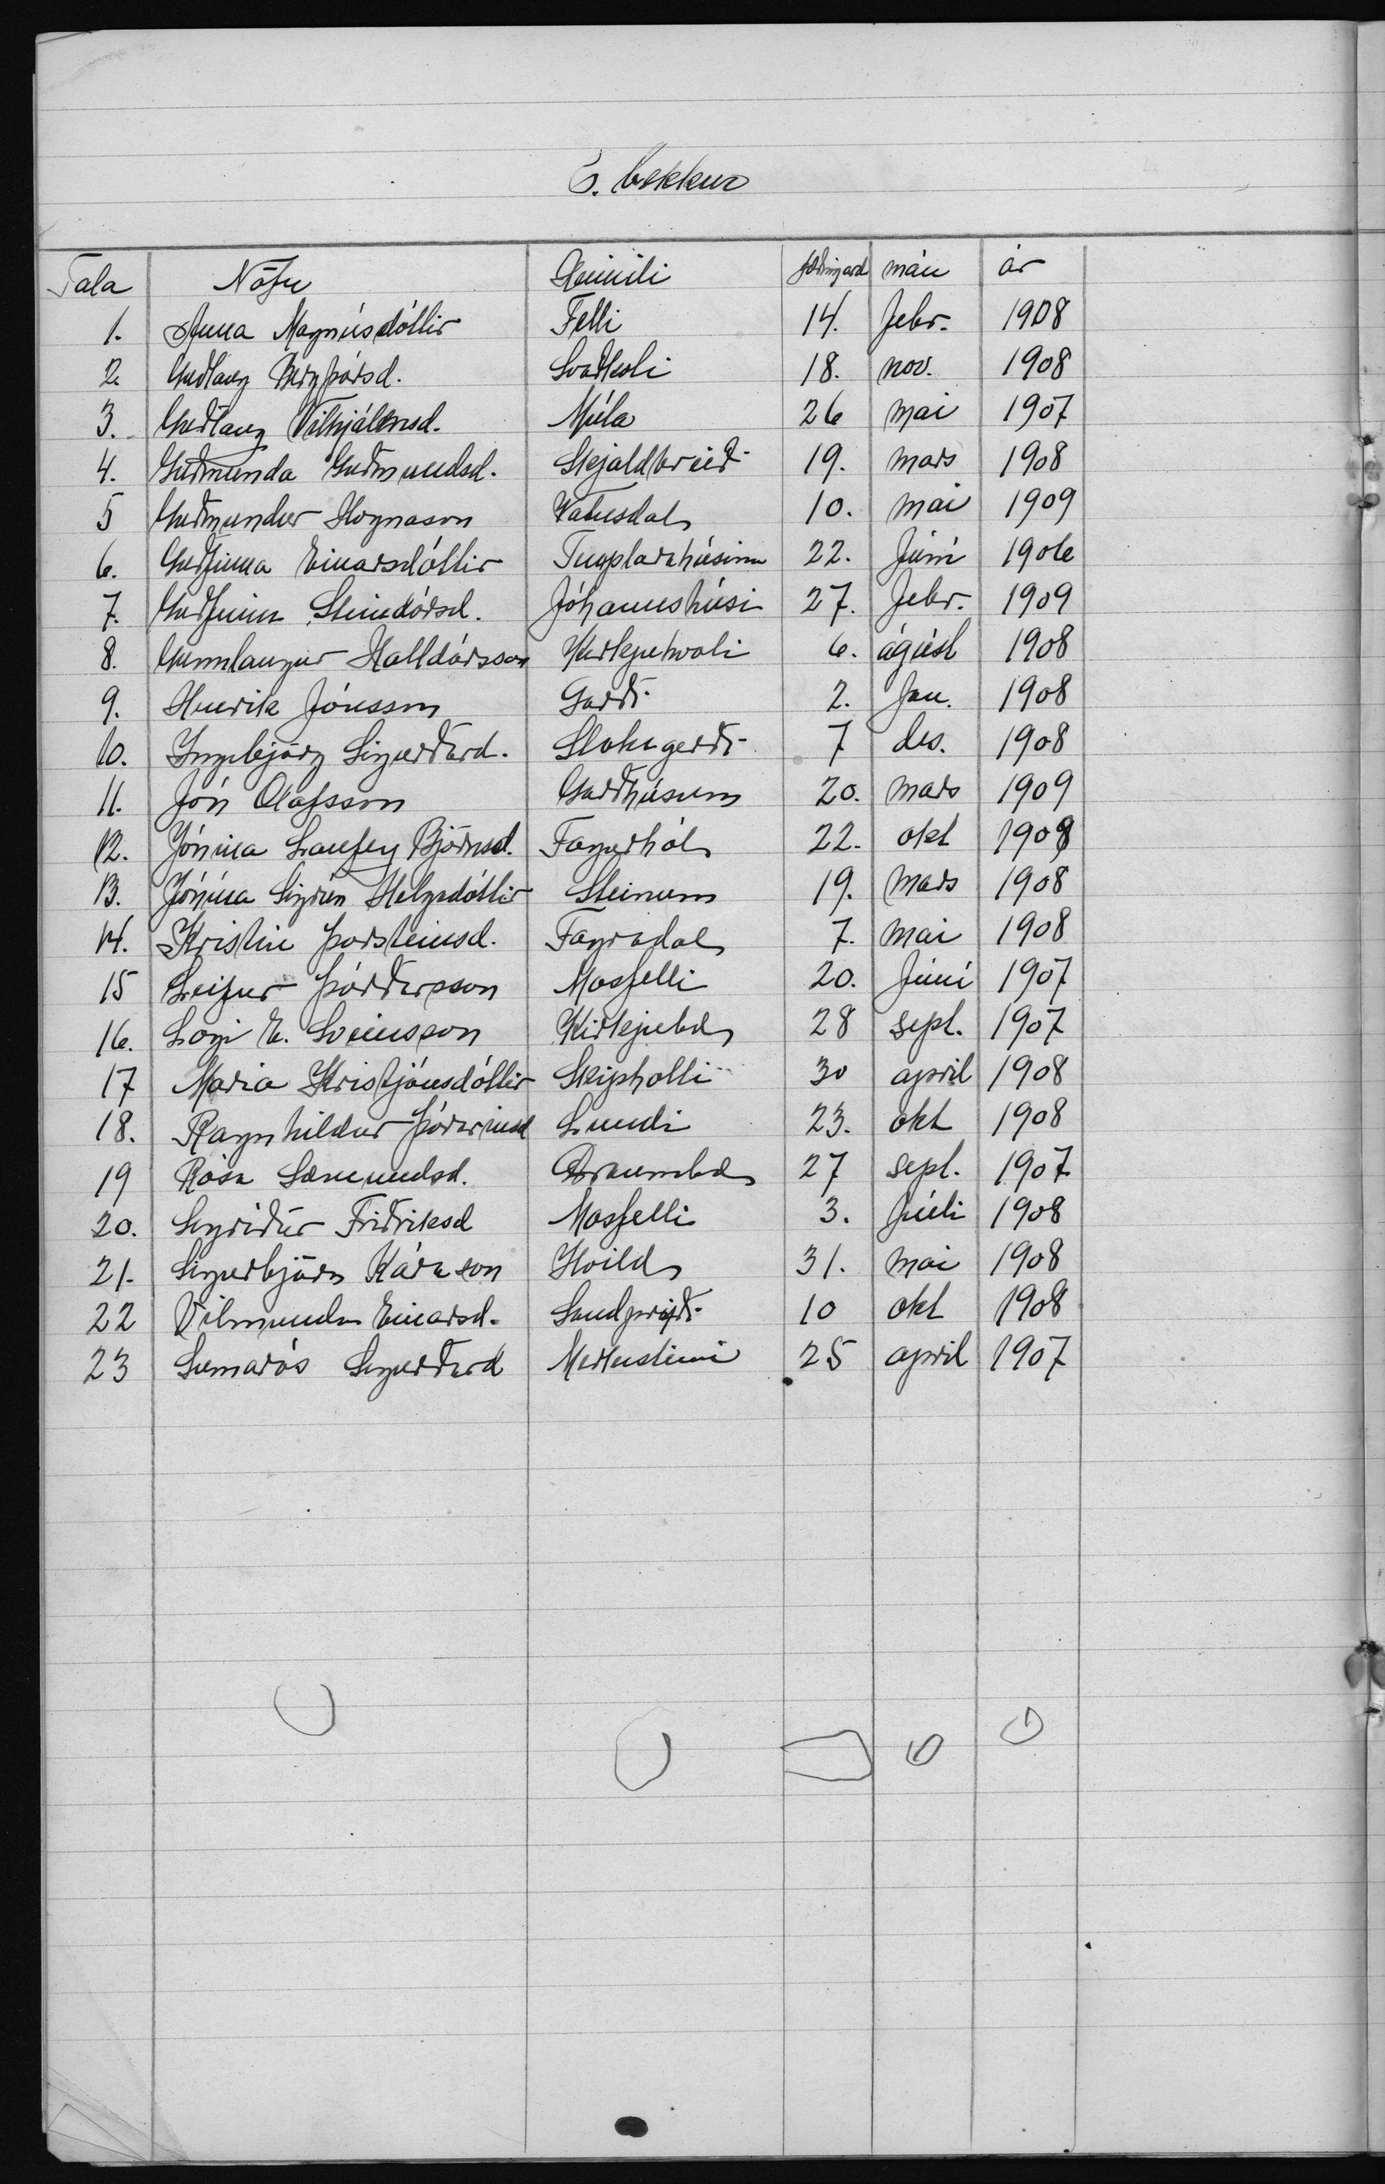 6. bekkur
Tala Nöfn Heimili fæðingard mán ár
1. Anna Magnúsdóttir Felli 14. febr. 1908
2. Guðlaug Bergþórsd. Svaðkoti 18. nov. 1908
3. Guðlaug Vilhjálmsd. Múla 26 mai 1907
4. Guðmunda Guðmundsd. Skjaldbreið 19. mars 1908
5 Guðmundur Hognason Vatnsdal 10. mai 1909
6. Guðfinna Einarsdóttir Templarahúsinu 22. Júní 1906
7. Guðfinna Steindórsd. Jóhannshúsi 27. febr. 1909
8. Gunnlaugur Halldórsson Kirkjuhvoli 6. ágúst 1908
9. Henrik Jónsson Garði 2. Jan. 1908
10. Ingibjörg Sigurðard. Stakagerði 7 des. 1908
11. Jón Olafsson Garðhúsum 20. mars 1909
12. Jónina Laufey Björnsd. Fagurhól 22. okt 1908
13. Jónína Sigrún Helgadóttir Steinum 19. mars 1908
14. Kristin Þorsteinsd. Fagradal 7. mai 1908
15 Leifur Þórðarson Mosfelli 20. Júní 1907
16. Logi E. Sveinsson Kirkjubæ 28 sept. 1907
17 Maria Kristjánsdóttir Skipholti 30 april 1908
18. Ragnhildur Þórarinsd Lundi 23. okt 1908
19 Rósa Sæmundsd. Draumbæ 27 sept. 1907
20. Sigríður Friðriksd Mosfelli 3. Júli 1908
21. Sigurbjörn Kárason Hvild 31. mai 1908
22 Vilmunda Einarsd. Sandprýði 10 okt 1908
23 Sumarós Sigurðard Merkisteini 25 april 1907